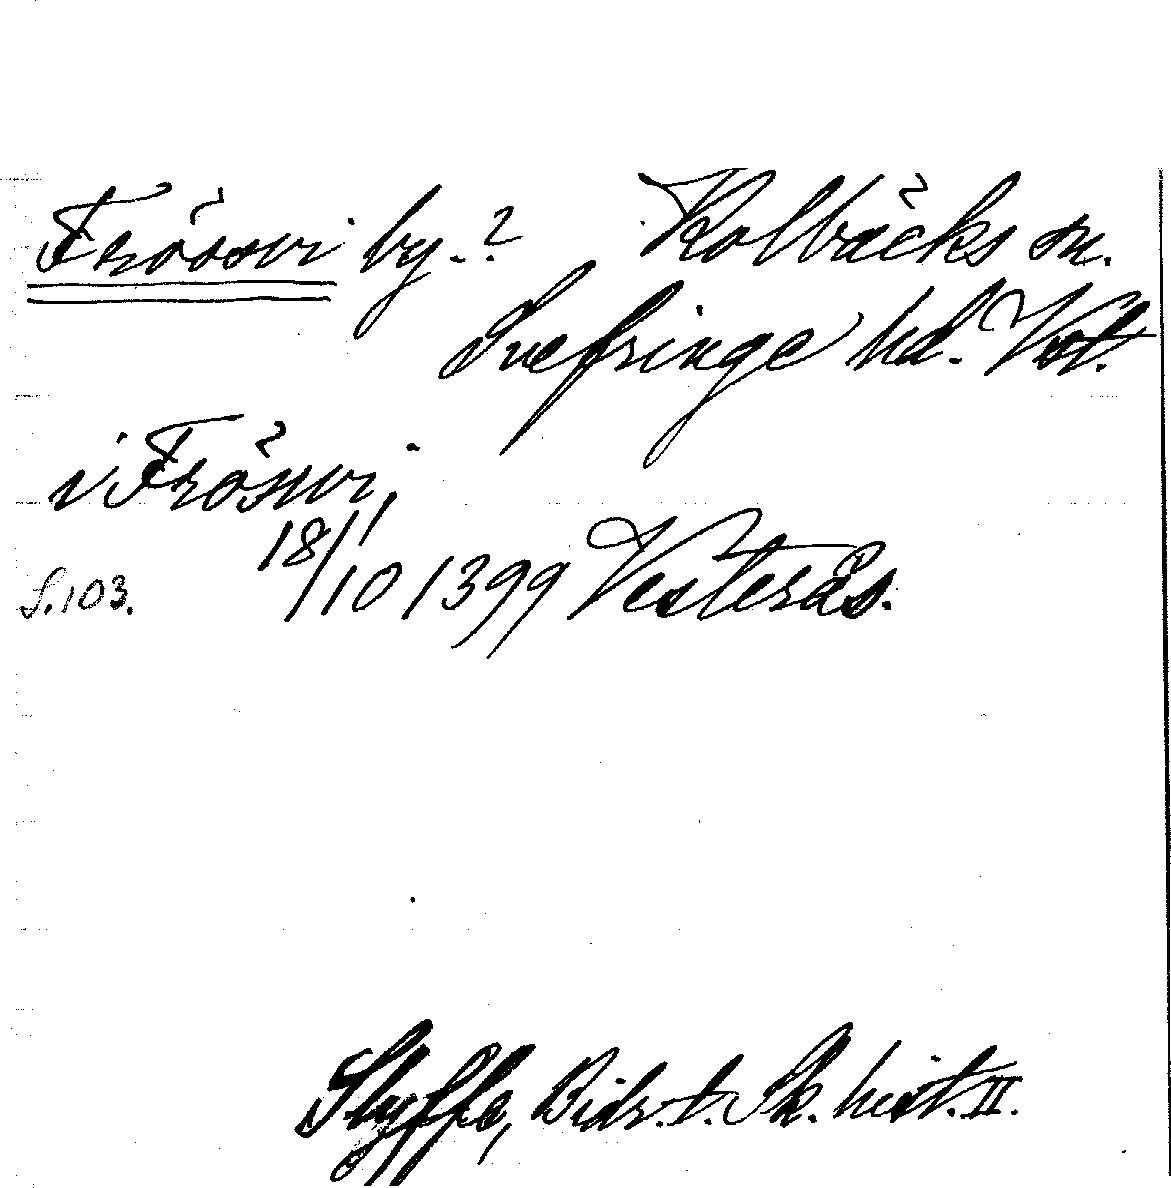 Frösvi by.? Kolbäcks sn.
Snefringe hd. Vstl.
i Frösvi,
18/10 1399 Vesterås.
S. 103.
Styffe, Bidr. t. Sk. hist. II.